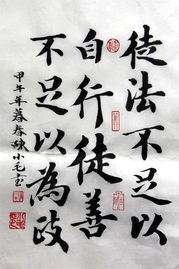 徒法不足以
自行徒善
不足以為政
甲午年暮春陳小毛